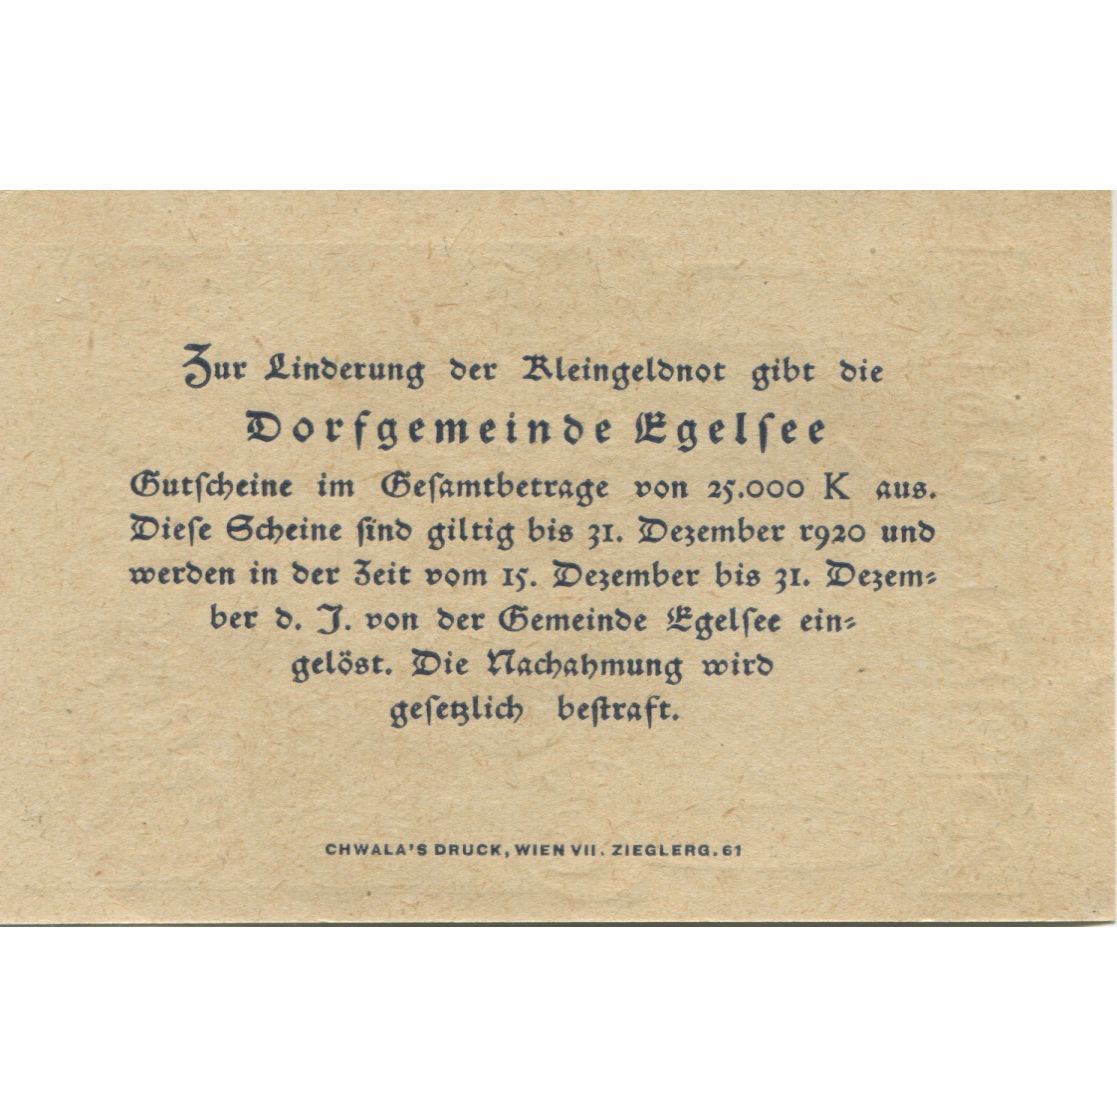 Zur Linderung der Kleingeldnot gibt die
Dorfgemeinde Egelſee
Gutſcheine im Geſamtbetrage von 25.000 K aus.
Dieſe Scheine ſind giltig bis 31. Dezember 1920 und
werden in der Zeit vom 15. Dezember bis 31. Dezem⸗
ber d. J. von der Gemeinde Egelſee ein⸗
gelöst. Die Nachahmung wird
geſetzlich beſtraft.
CHWALA'S DRUCK, WIEN VII. ZIEGLERG. 61